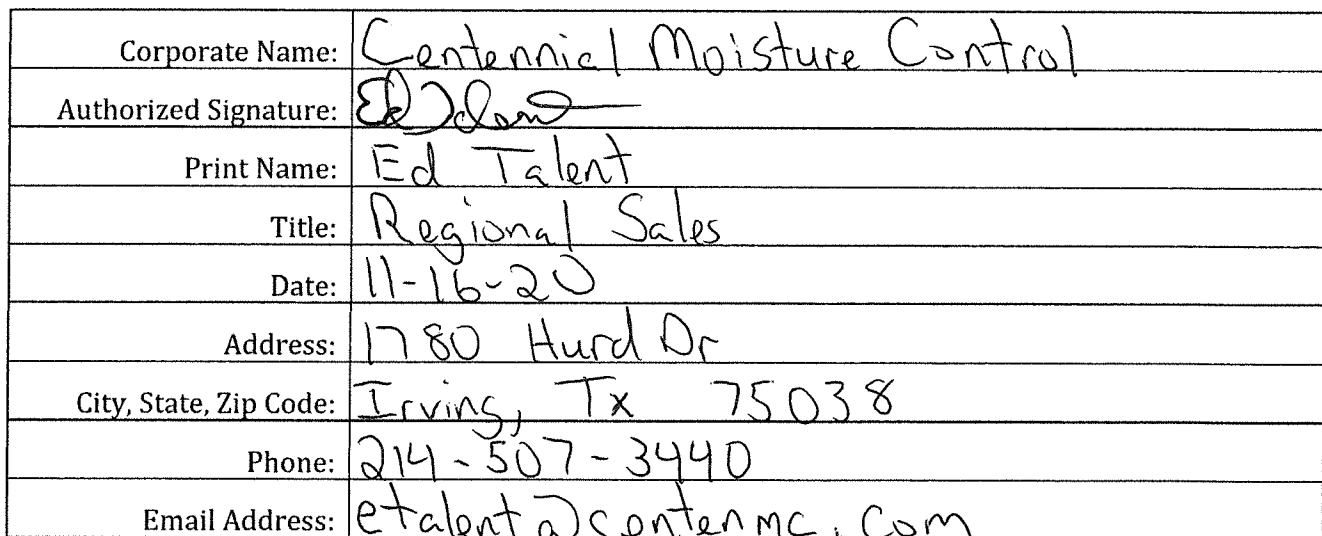 Corporate Name: Centennial Moisture Control
Authorized Signature: Ed Talent
Print Name: Ed Talent
Title: Regional Sales
Date: 11-16-20
Address: 1780 Hurd Dr
City, State, Zip Code: Irving, Tx 75038
Phone: 214-507-3440
Email Address: etalent@centenmc.com